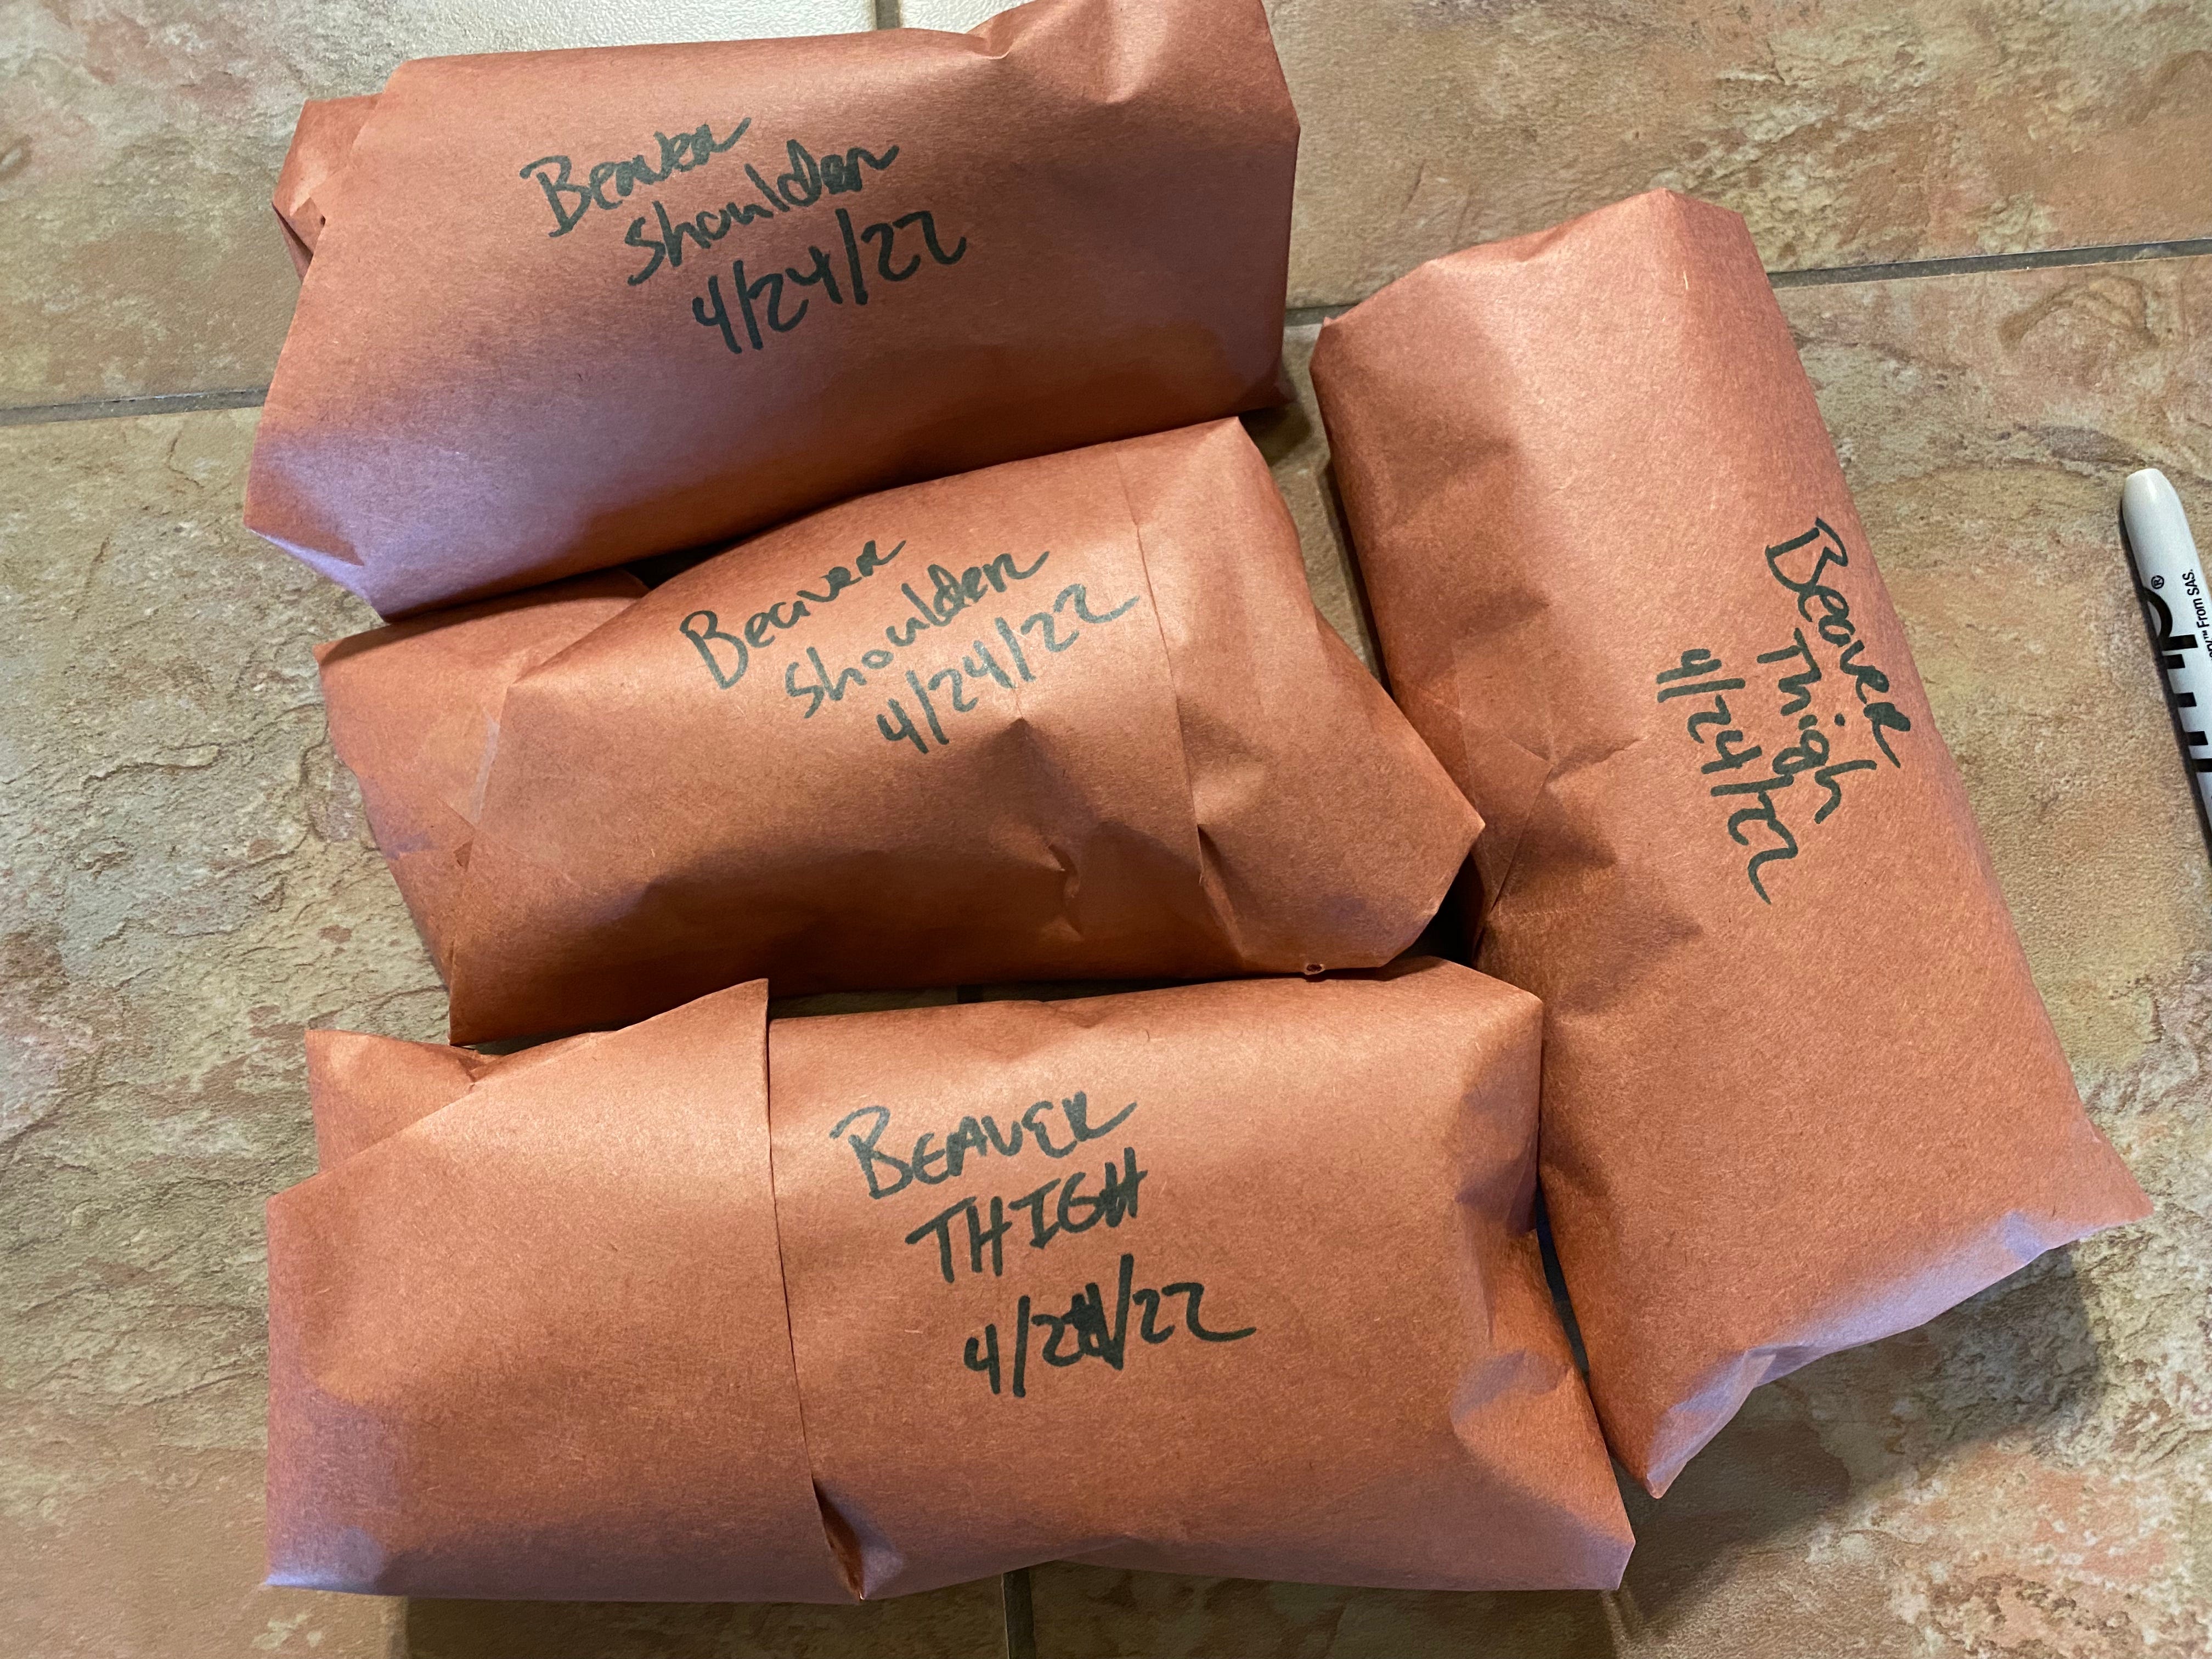 Beaver
Shoulder
4/24/22
Beaver
Shoulder
4/24/22
Beaver
Thigh
4/24/22
BEAVER
THIGH
4/24/22
From SAS.